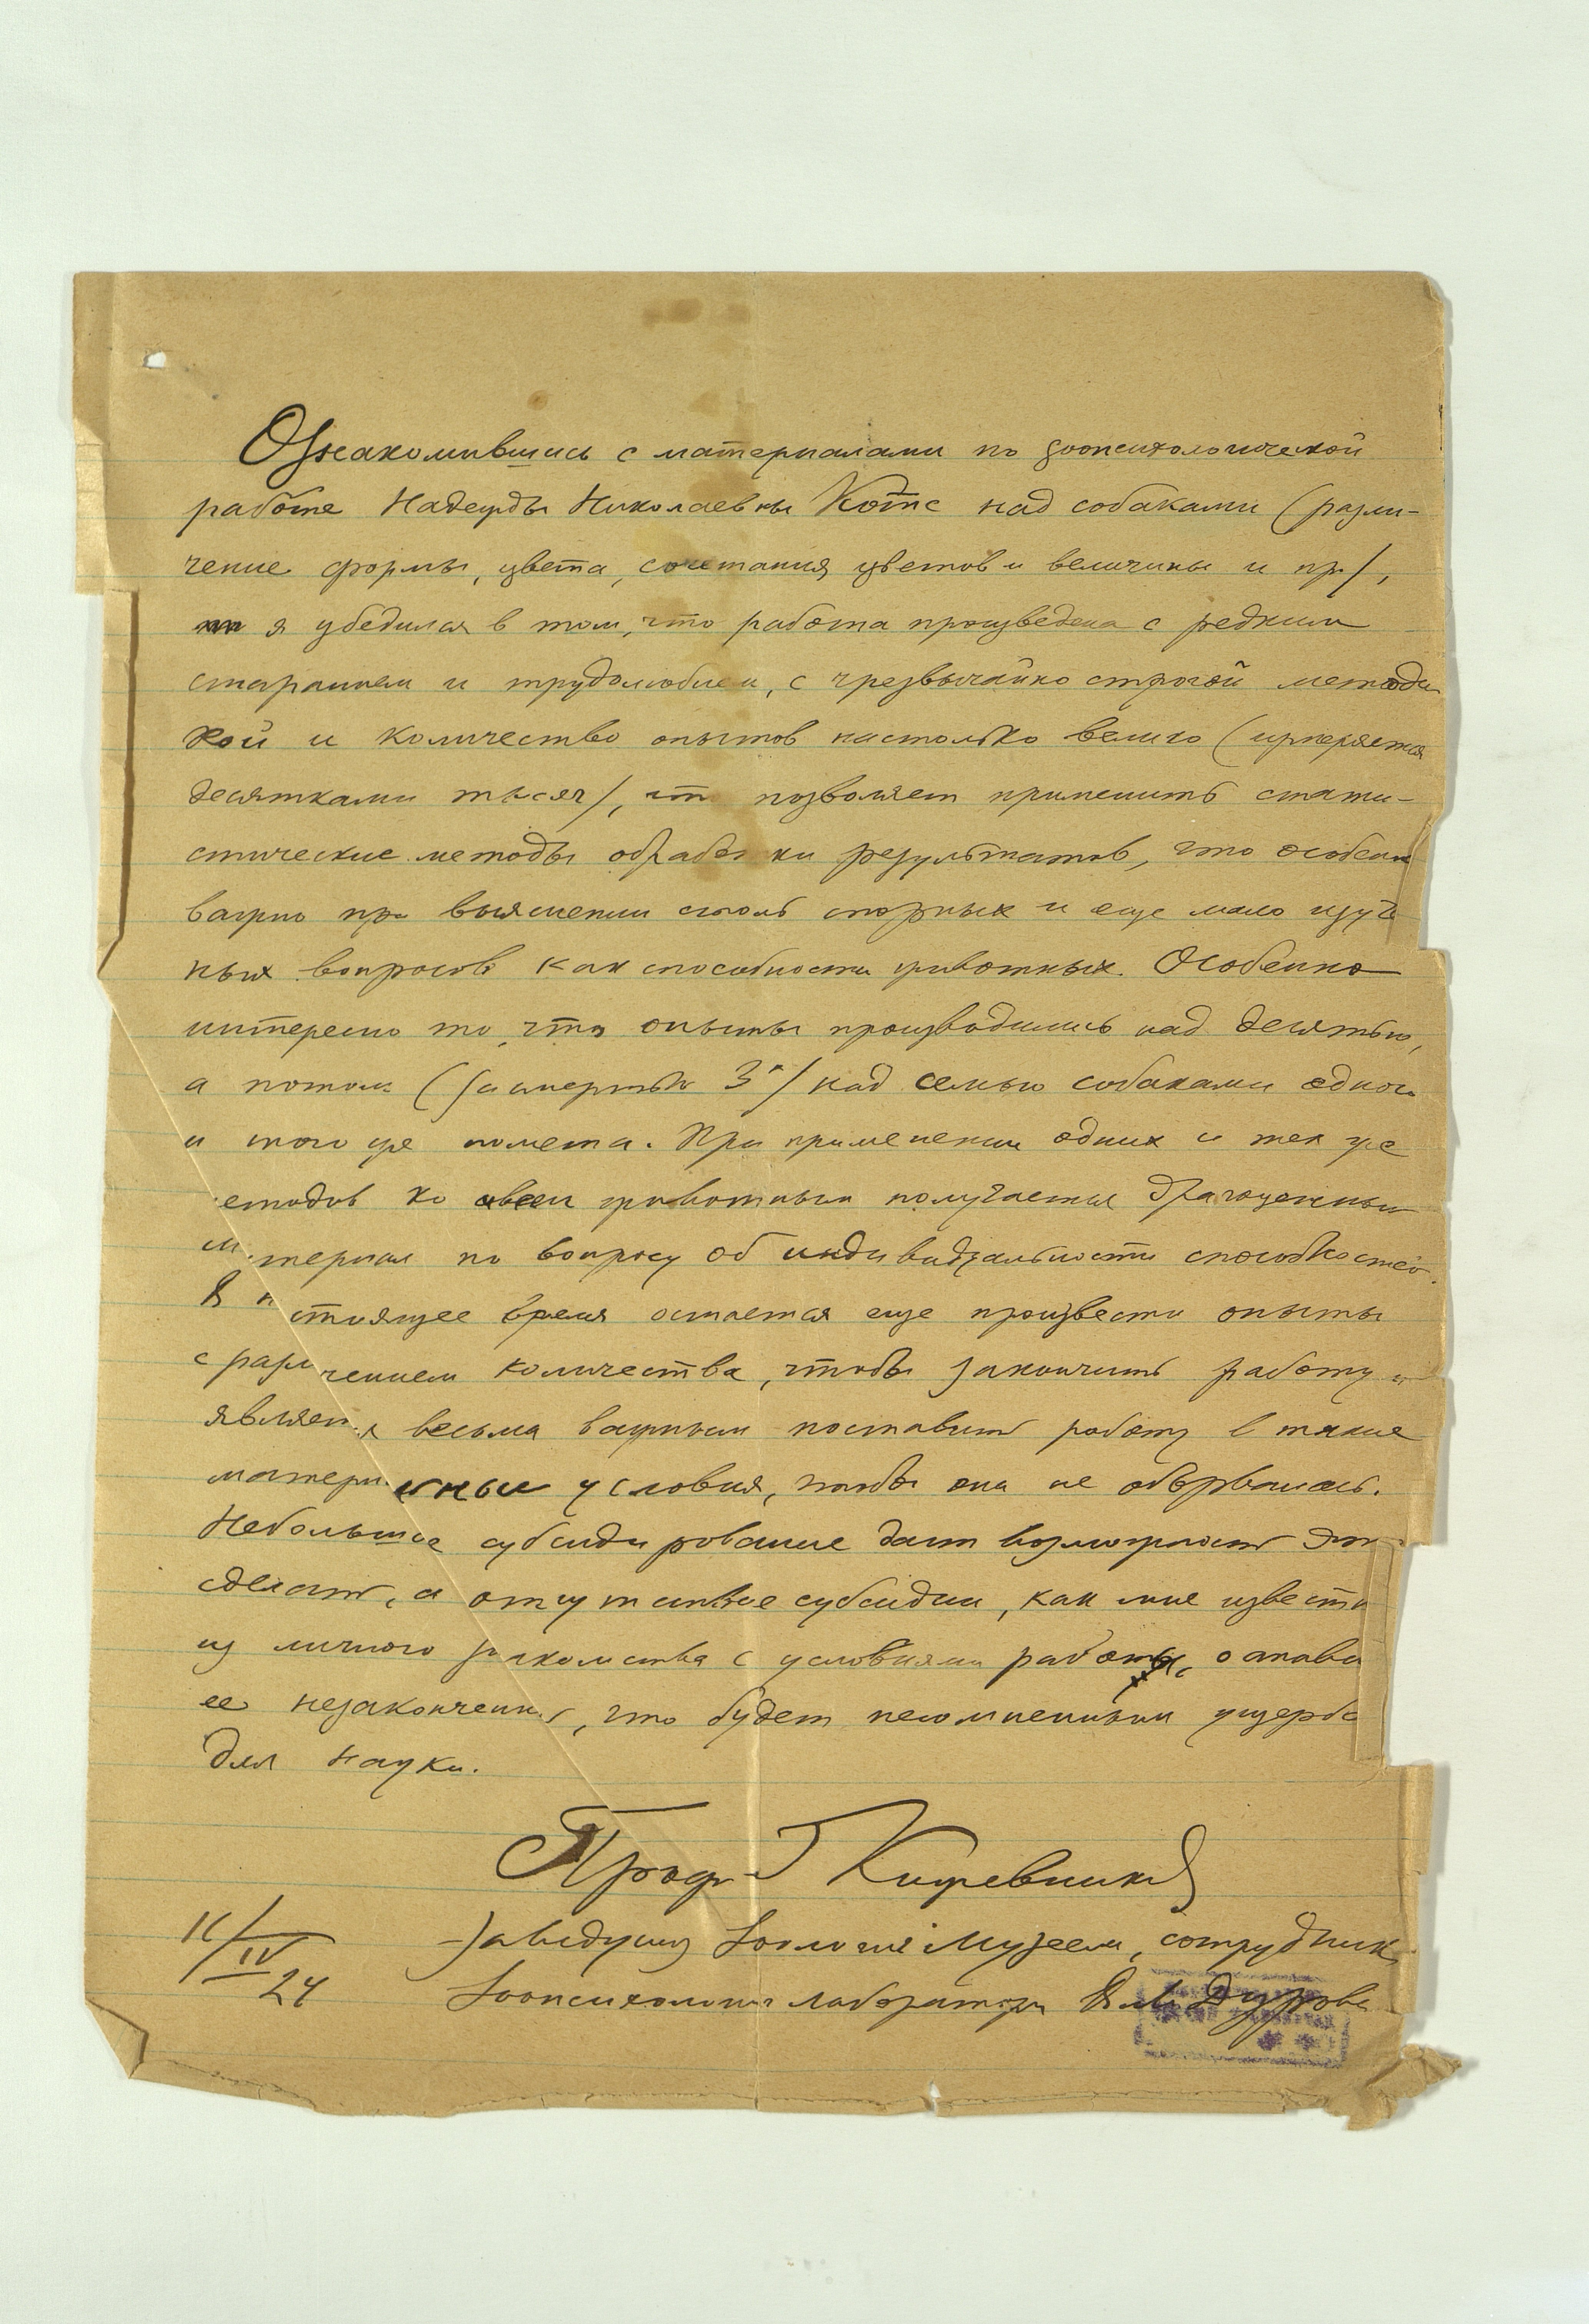 Ознакомившись с материалами по зоопсихологической
работе Надежды Николаевны Котс над собаками (разли-
чение формы, цвета, сочетания цветов и величины и пр),
я убедился в том, что работа произведена с редким
старанием и трудолюбием, с чрезвычайно строгой методи
кой и количество опытов настолько велико (измеряется
десятками тысяч), что позволяет применить стати-
стические методы обработки результатов, что особенн
важно при выяснении столь спорных и еще мало изуче
ных вопросов как способности животных. Особенно
интересно то, что опыты производились над десятью,
а потом (за смертью 3х) над семью собаками одного
и того же помета. При применении одних и тех же
етодов ко всем животным получается драгоценный
материал по вопросу об индивидуальности способностей.
В н стоящее время остается еще произвести опыты
с различением количества, чтобы закончить работу и
является весьма важным поставить работу в такие
матери льные условия, чтобы она не оборвалась.
Небольшое субсидирование даст возможность это
сделать, а отсутствие субсидии, как мне известн
из личного знакомства с условиями работы, остави
ее незаконченной, что будет несомненным ущербо
для науки.
Проф Г Кожевников
Заведующ Зоологич Музеем, сотрудник
Зоопсихологич лаборатори В Л Дурова
16/IV 24